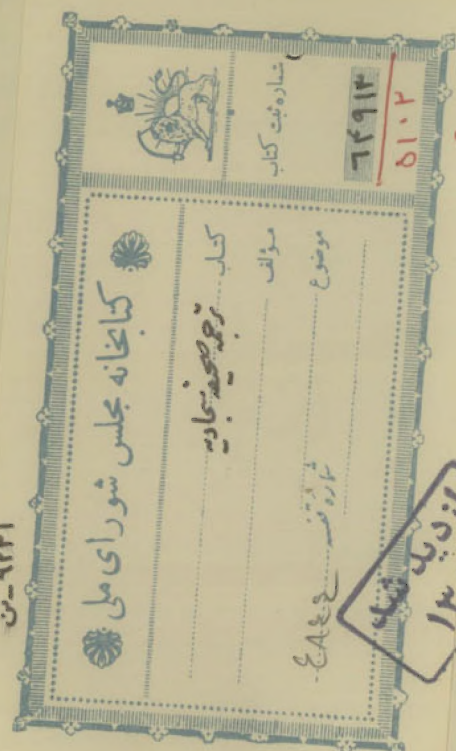 کتابخانه مجلس شورای ملی
کتاب ترجمه صحیفه سجادیه
مؤلف
موضوع
شماره قفسه ٤٨٤٤
شماره ثبت کتاب
۶۴۹۱۲
۵۱۰۲
بازدید شد